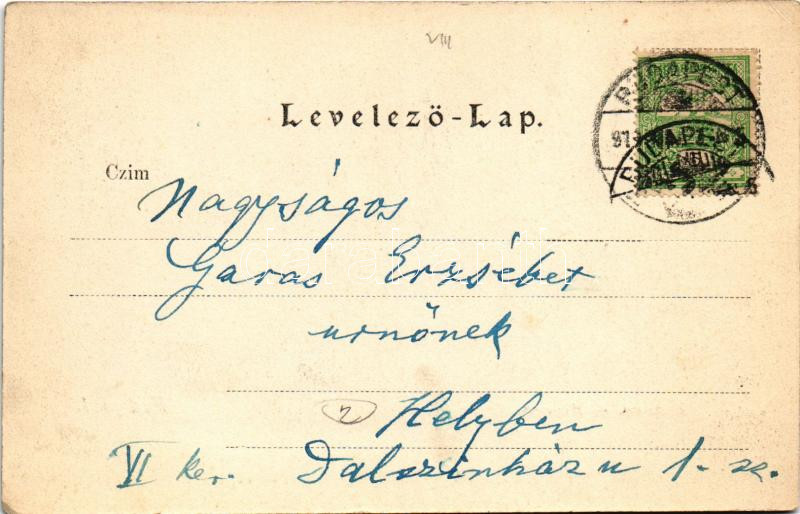 VIII
BUDAPEST
Levelező-Lap.
BUDAPEST
Czim
Nagyságos
Garas Erzsébet
urnőnek
2
Helyben
VI ker. Dalszinház u 1. sz.